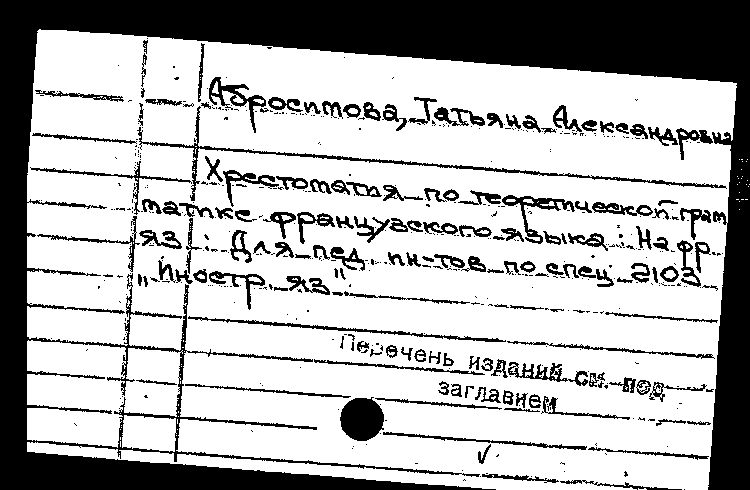 Абросимова, Татьяна Александровна
Хрестоматия по теоретической грам
матике французского языка : На фр.
яз : Для пед. ин-тов по спец 2103
„Иностр. яз"
Перечень изданий см. под
заглавием